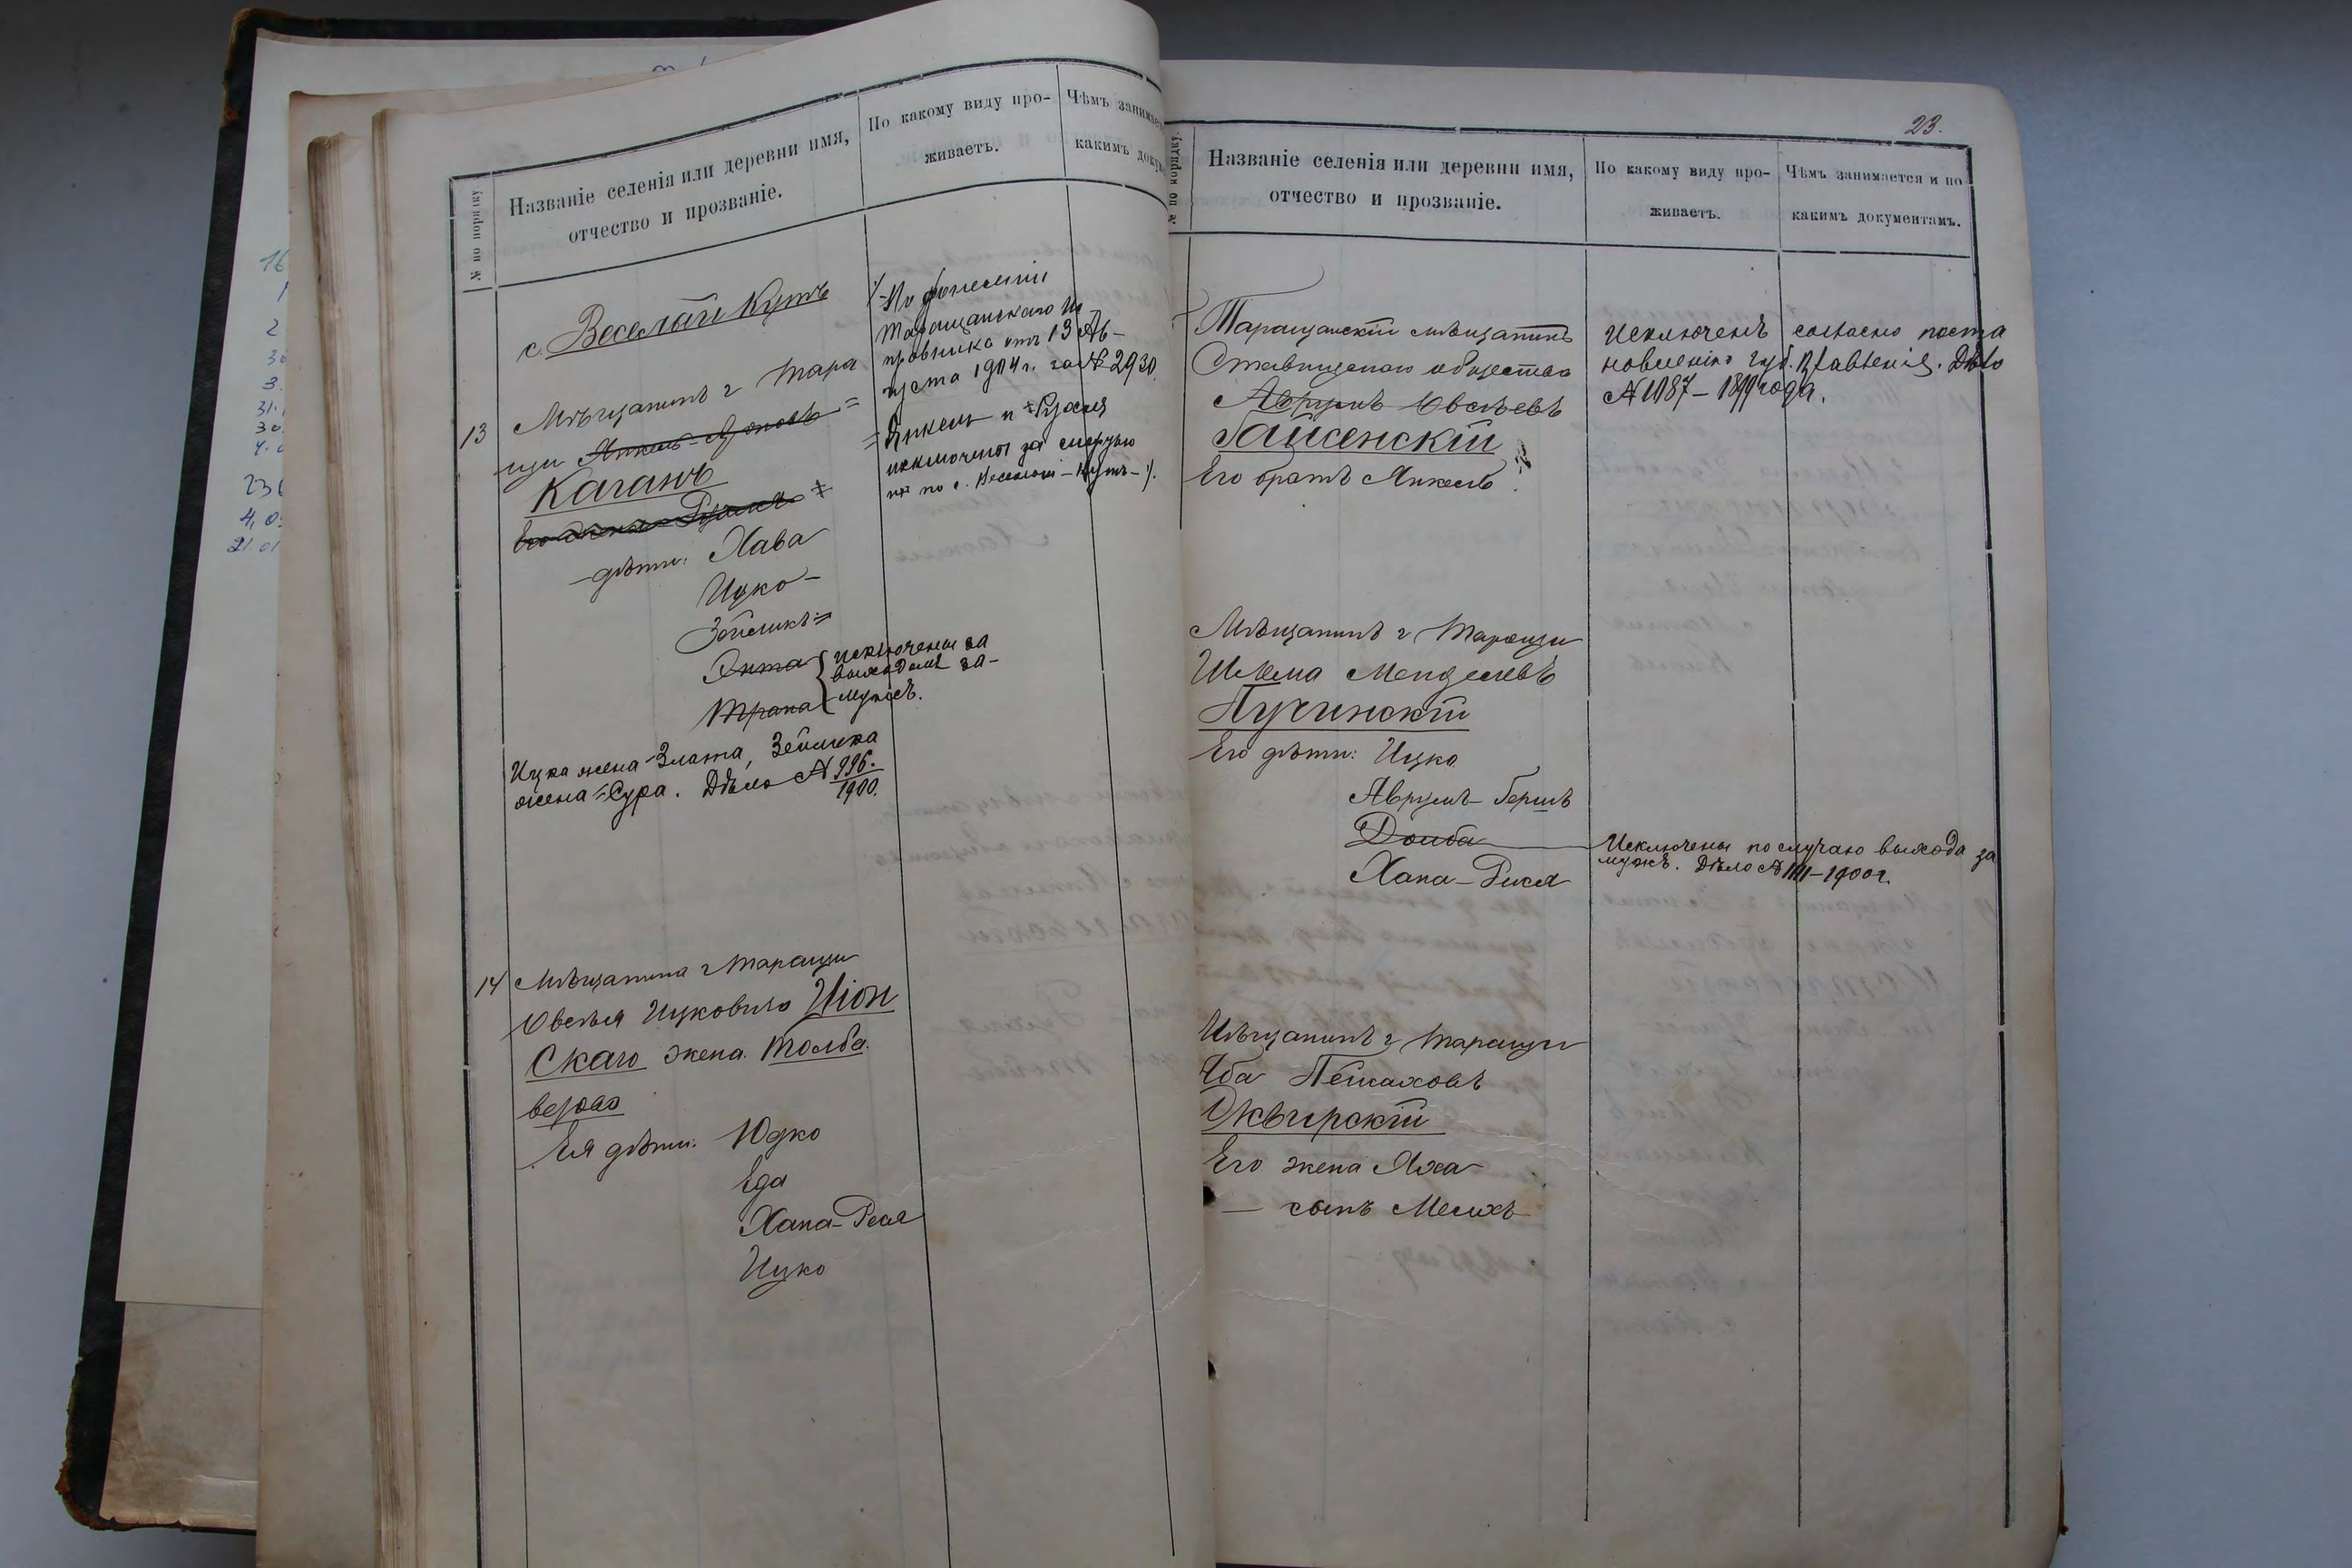 № по порядку
Названіе селенія или деревни имя,
отчество и прозваніе.
По какому виду про-
живаетъ.
Чѣмъ занимает
какимъ доку
с. Веселый Кутъ
13
Мѣщанинъ г Тара
щи Янкель
Каганъ
Его жена Рухля
дѣти: Хава
Ицко
Зейликъ
Ента
Трана
исключены за
выходомъ за-
мужъ.
Ицка жена Злата, Зейлика
жена = Сура. Дѣло № 996.
1900.
По донесенію
Таращанскаго Ис
правника отъ 13 Ав-
густа 1904 г. за № 2930.
Янкель и Рухля
исключены за смертью
по с. Веселый-Кутъ
14
Мѣщанина г Таращи
Овсѣя Ицковича
Скаго жена
Ея дѣти: Юдко
Еда
Хана-Рейзя
Ицко
23.
№ по порядку
Названіе селенія или деревни имя,
отчество и прозваніе.
По какому виду про-
живаетъ.
Чѣмъ занимается и по
какимъ документамъ.
Таращанскій мѣщанинъ
Ставищскаго общества
Аврумъ Овсѣевъ
Гайсенскій
Его братъ Янкель
Исключенъ согласно поста
новленію губ. Правленія. Дѣло
№ 1187 – 1899 года.
Мѣщанинъ г Таращи
Шлема Менделевъ
Пугинскій
Его дѣти: Ицко
Аврумъ-Гершъ
Доиба
Хана-Рися
Исключены по случаю выхода за
мужъ. Дѣло № 1111 – 1900 г.
Мѣщанинъ г Таращи
Пейсаховъ
Сквирскій
Его жена Хая
— сынъ Мелихъ